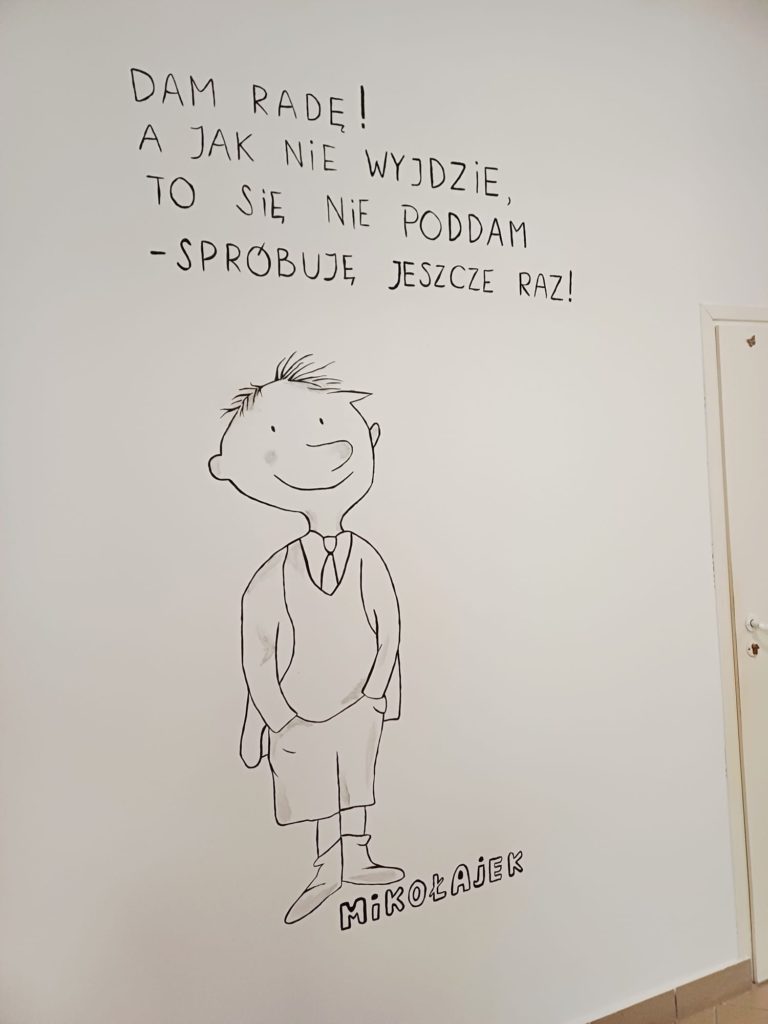 DAM RADĘ!
A JAK NiE WYJDZiE,
TO SiĘ NiE PODDAM
-SPRÓBUJĘ JESZCZE RAZ!
MiKOŁAJEK